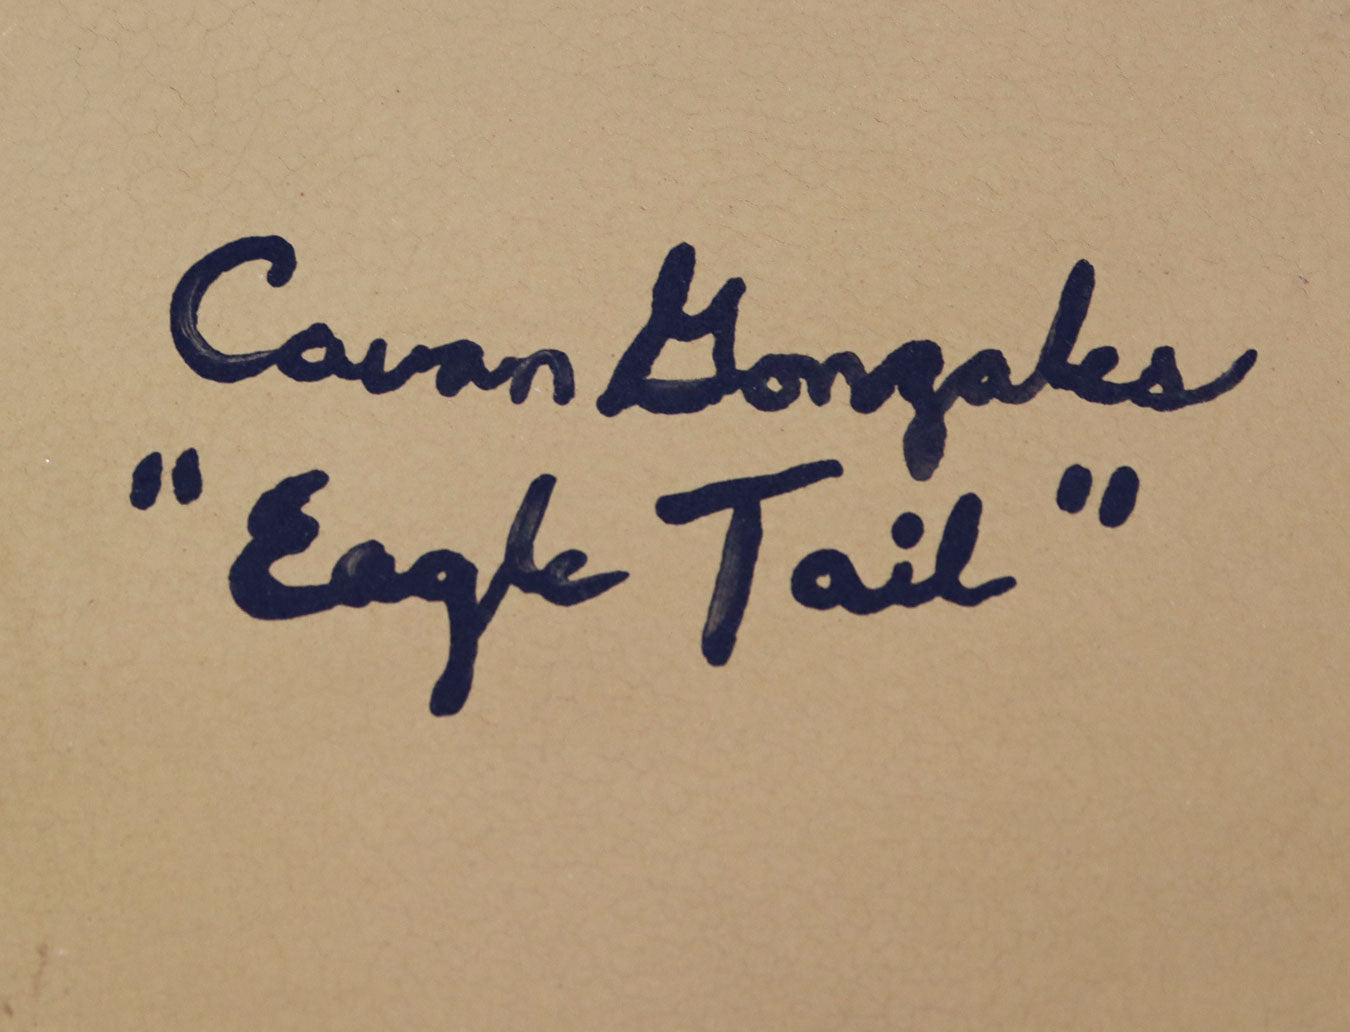 Cavan Gonzales
"Eagle Tail"